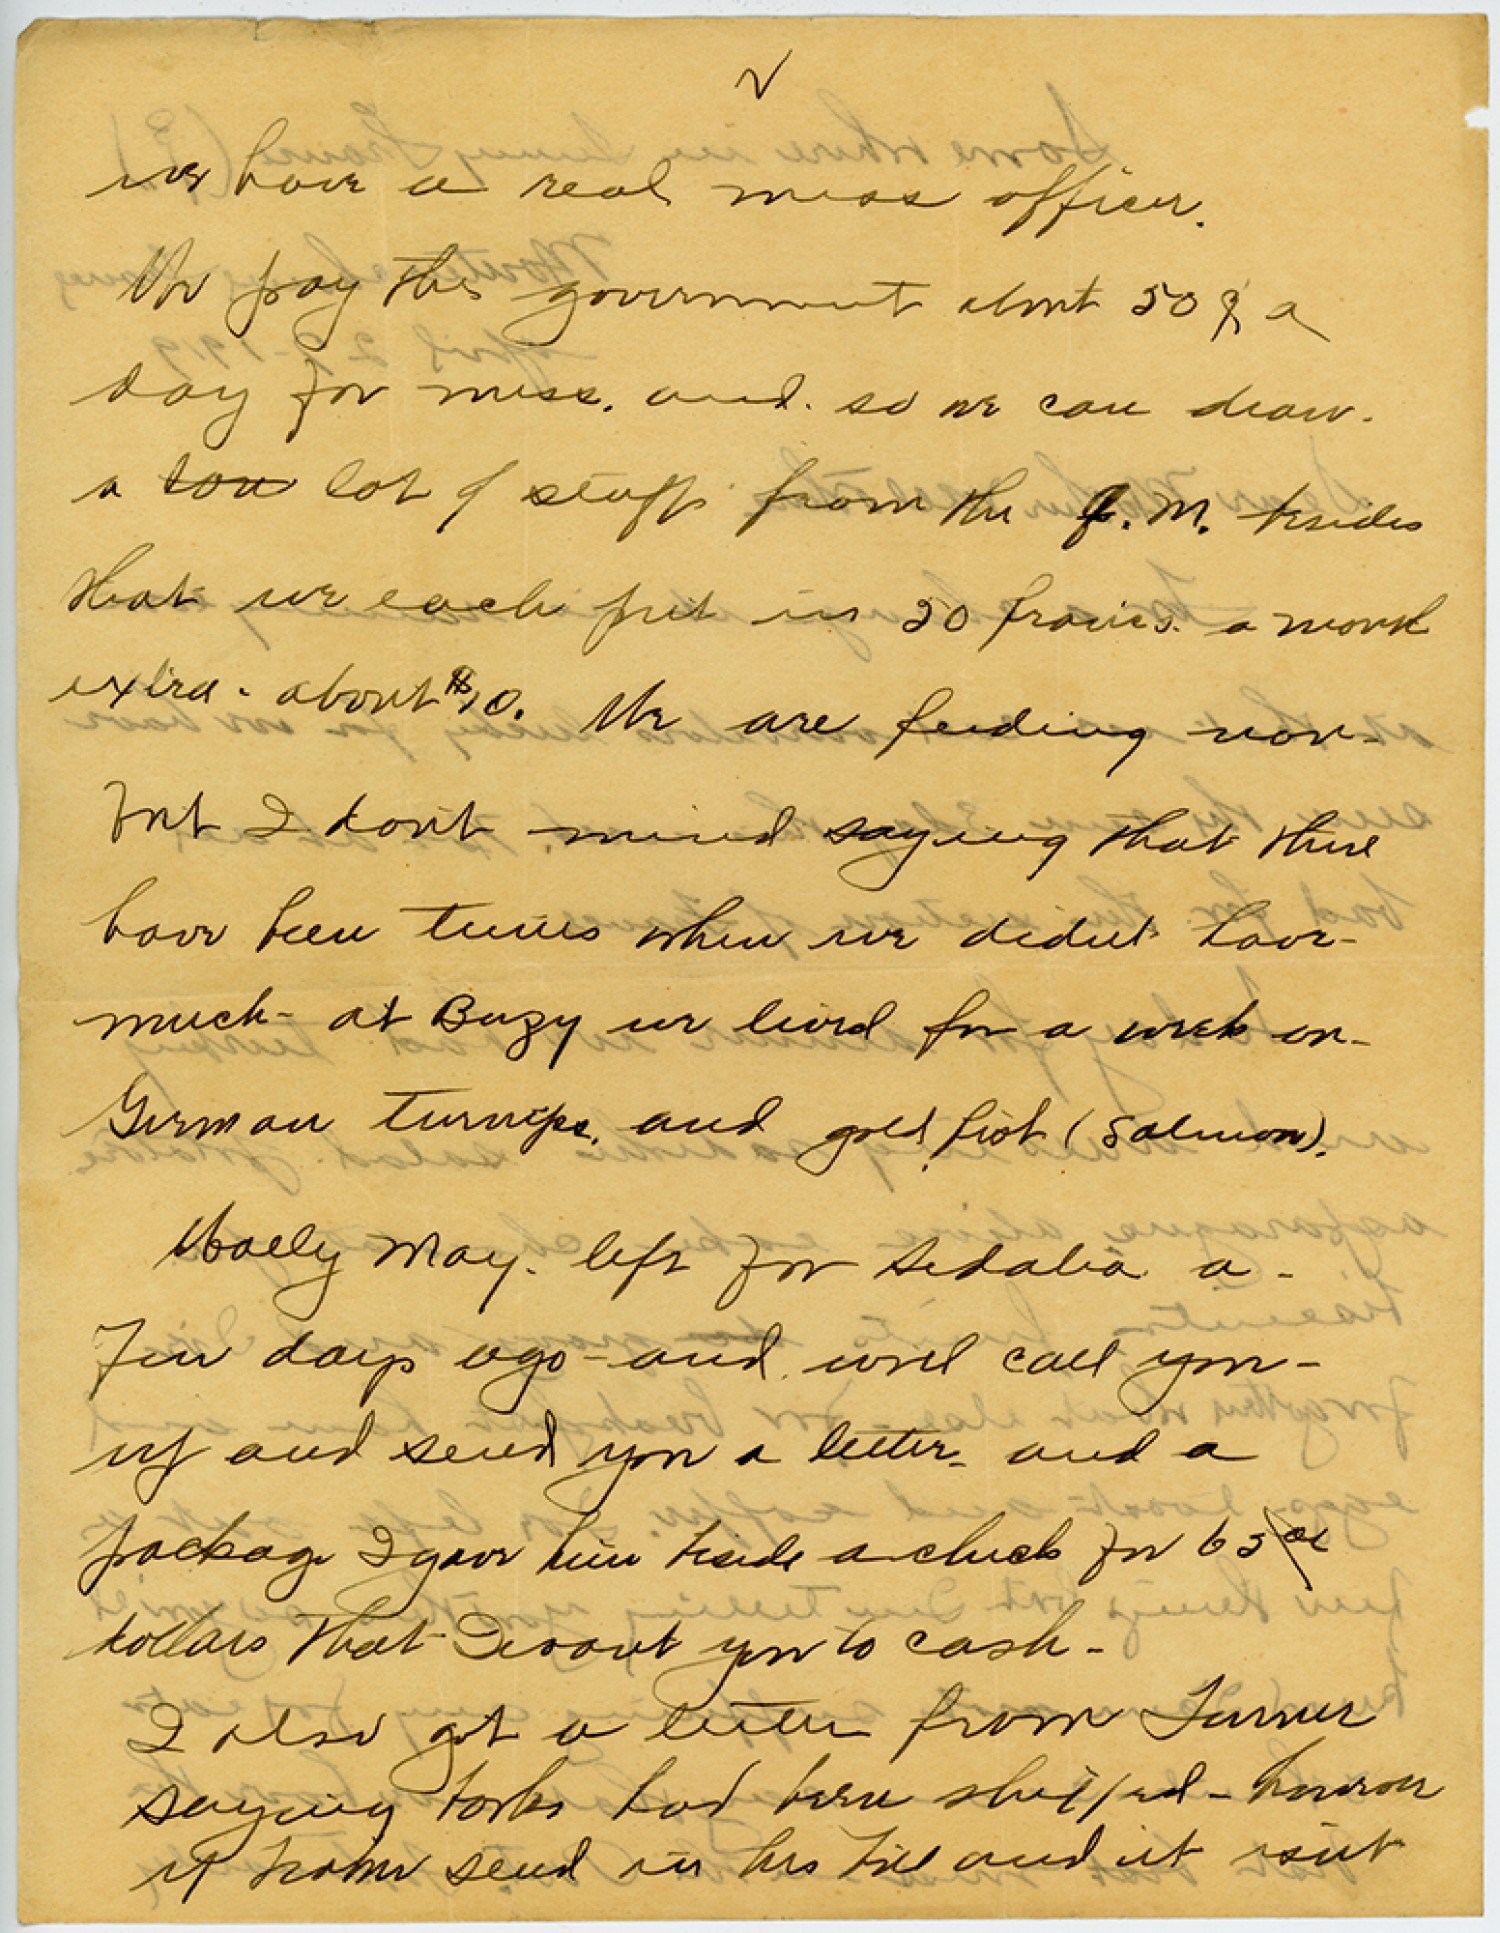 we have a real mess officer.
We pay the government about 50¢ a
day for mess. and. so we can draw.
a lot of stuff from the Q.M. besides
that we each put in 50 francs. a month
extra. about $10. We are feeding now-
but I don't mind saying that there
have been times when we didnt have-
much- at Buzy we lived for a week on-
German turnips, and gold fish (Salmon).
Wally May. left for Sedalia a-
few days ago- and will call you-
up and send you a letter. and a
package I gave him beside a check for 63
dollars that I want you to cash-
I also got a letter from Turner
saying books had been shipped- however
if send in his bill and it isnt